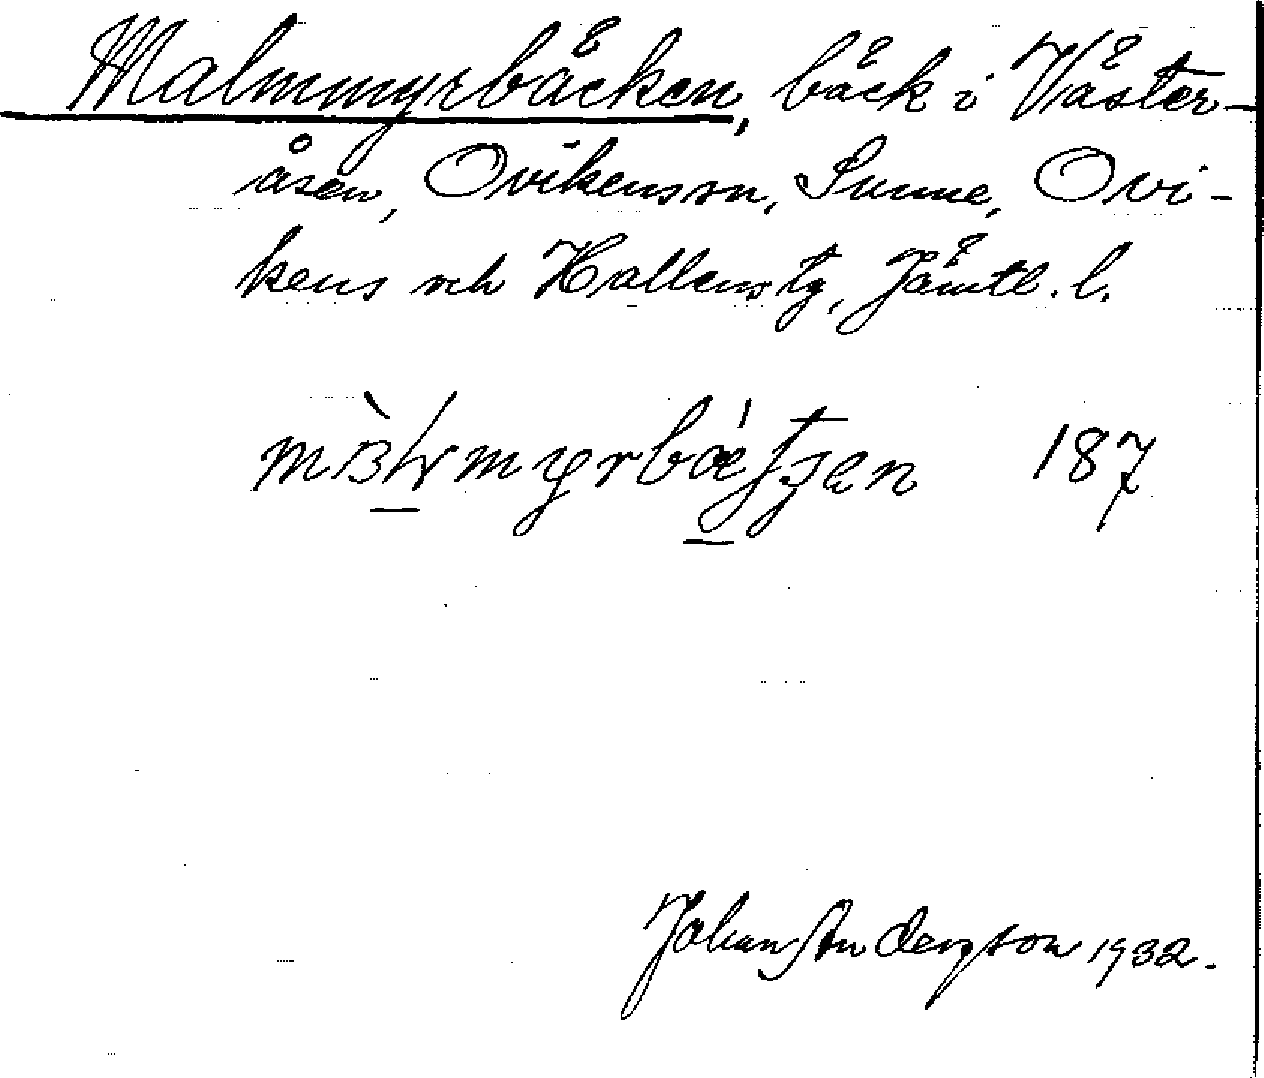 Malmmyrbäcken, bäck i Väster-
åsen, Ovikenssn, Sunne, Ovi-
kens och Hallens tg, Jämtl. l.
187
Johan Anderson 1932.